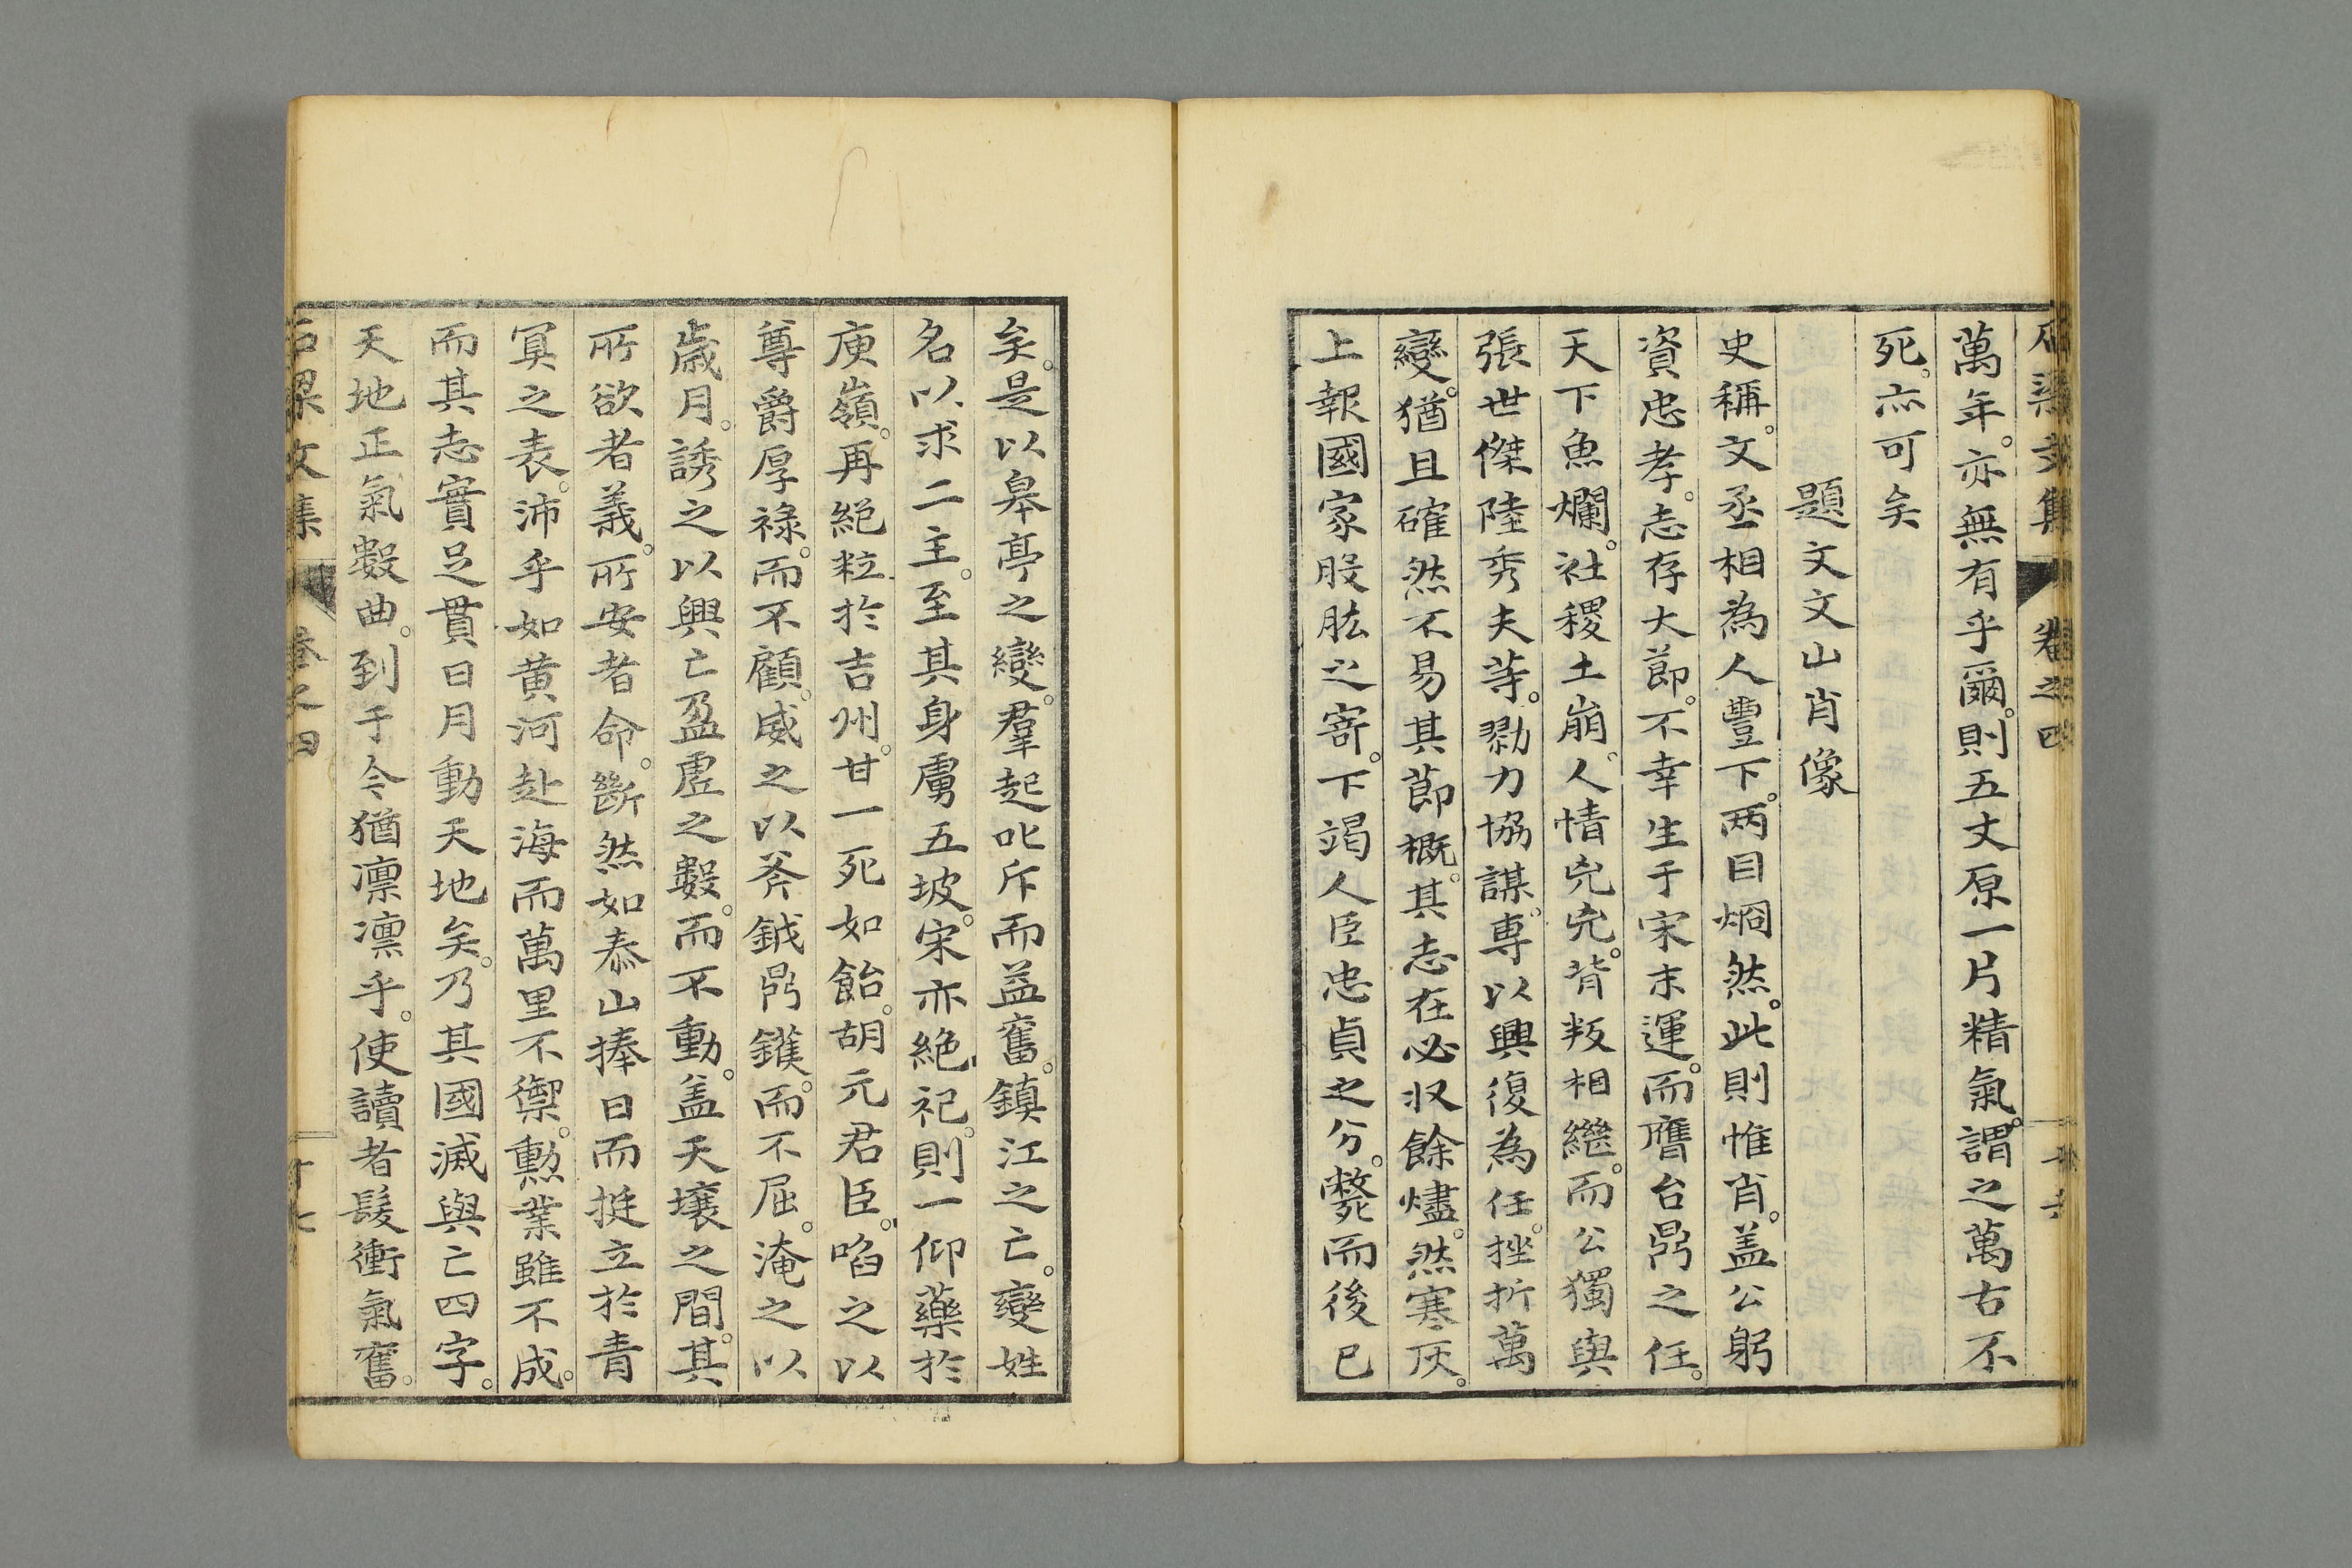 萬年。亦無有乎爾。則五丈原一片精氣。謂之萬古不
死。亦可矣
題文文山肖像
史稱。文丞相為人豐下。两目烱然。此則惟肖。盖公躬
資忠孝。志存大節。不幸生于宋末運。而膺台鼎之任。
天下魚爛。社稷土崩。人情兇兇。背叛相繼。而公獨與
張世傑陸秀夫等。勠力協謀。専以興復為任。挫折萬
變。猶且確然不易其節概。其志在必収餘燼。然寒灰。
上報國家股肱之寄。下竭人臣忠貞之分。斃而後已
矣。是以皋亭之變。羣起叱斥而益奮。鎮江之亡。變姓
名以求二主。至其身虜五坡。宋亦絶祀。則一仰藥於
庾嶺。再絕粒於吉州。甘一死如飴。胡元君臣。啗之以
尊爵厚祿。而不顧。威之以斧鉞鼎鑊。而不屈。淹之以
歳月。誘之以興亡盈虛之數。而不動。盖天壤之間。其
所欲者義。所安者命。斷然如泰山捧日而挺立於青
冥之表。沛乎如黄河赴海而萬里不禦。勲業雖不成。
而其志實足貫日月動天地矣。乃其國滅與亡四字。
天地正氣數曲。到于今猶凛凛乎。使讀者髮衝氣奮。
文集 卷之四